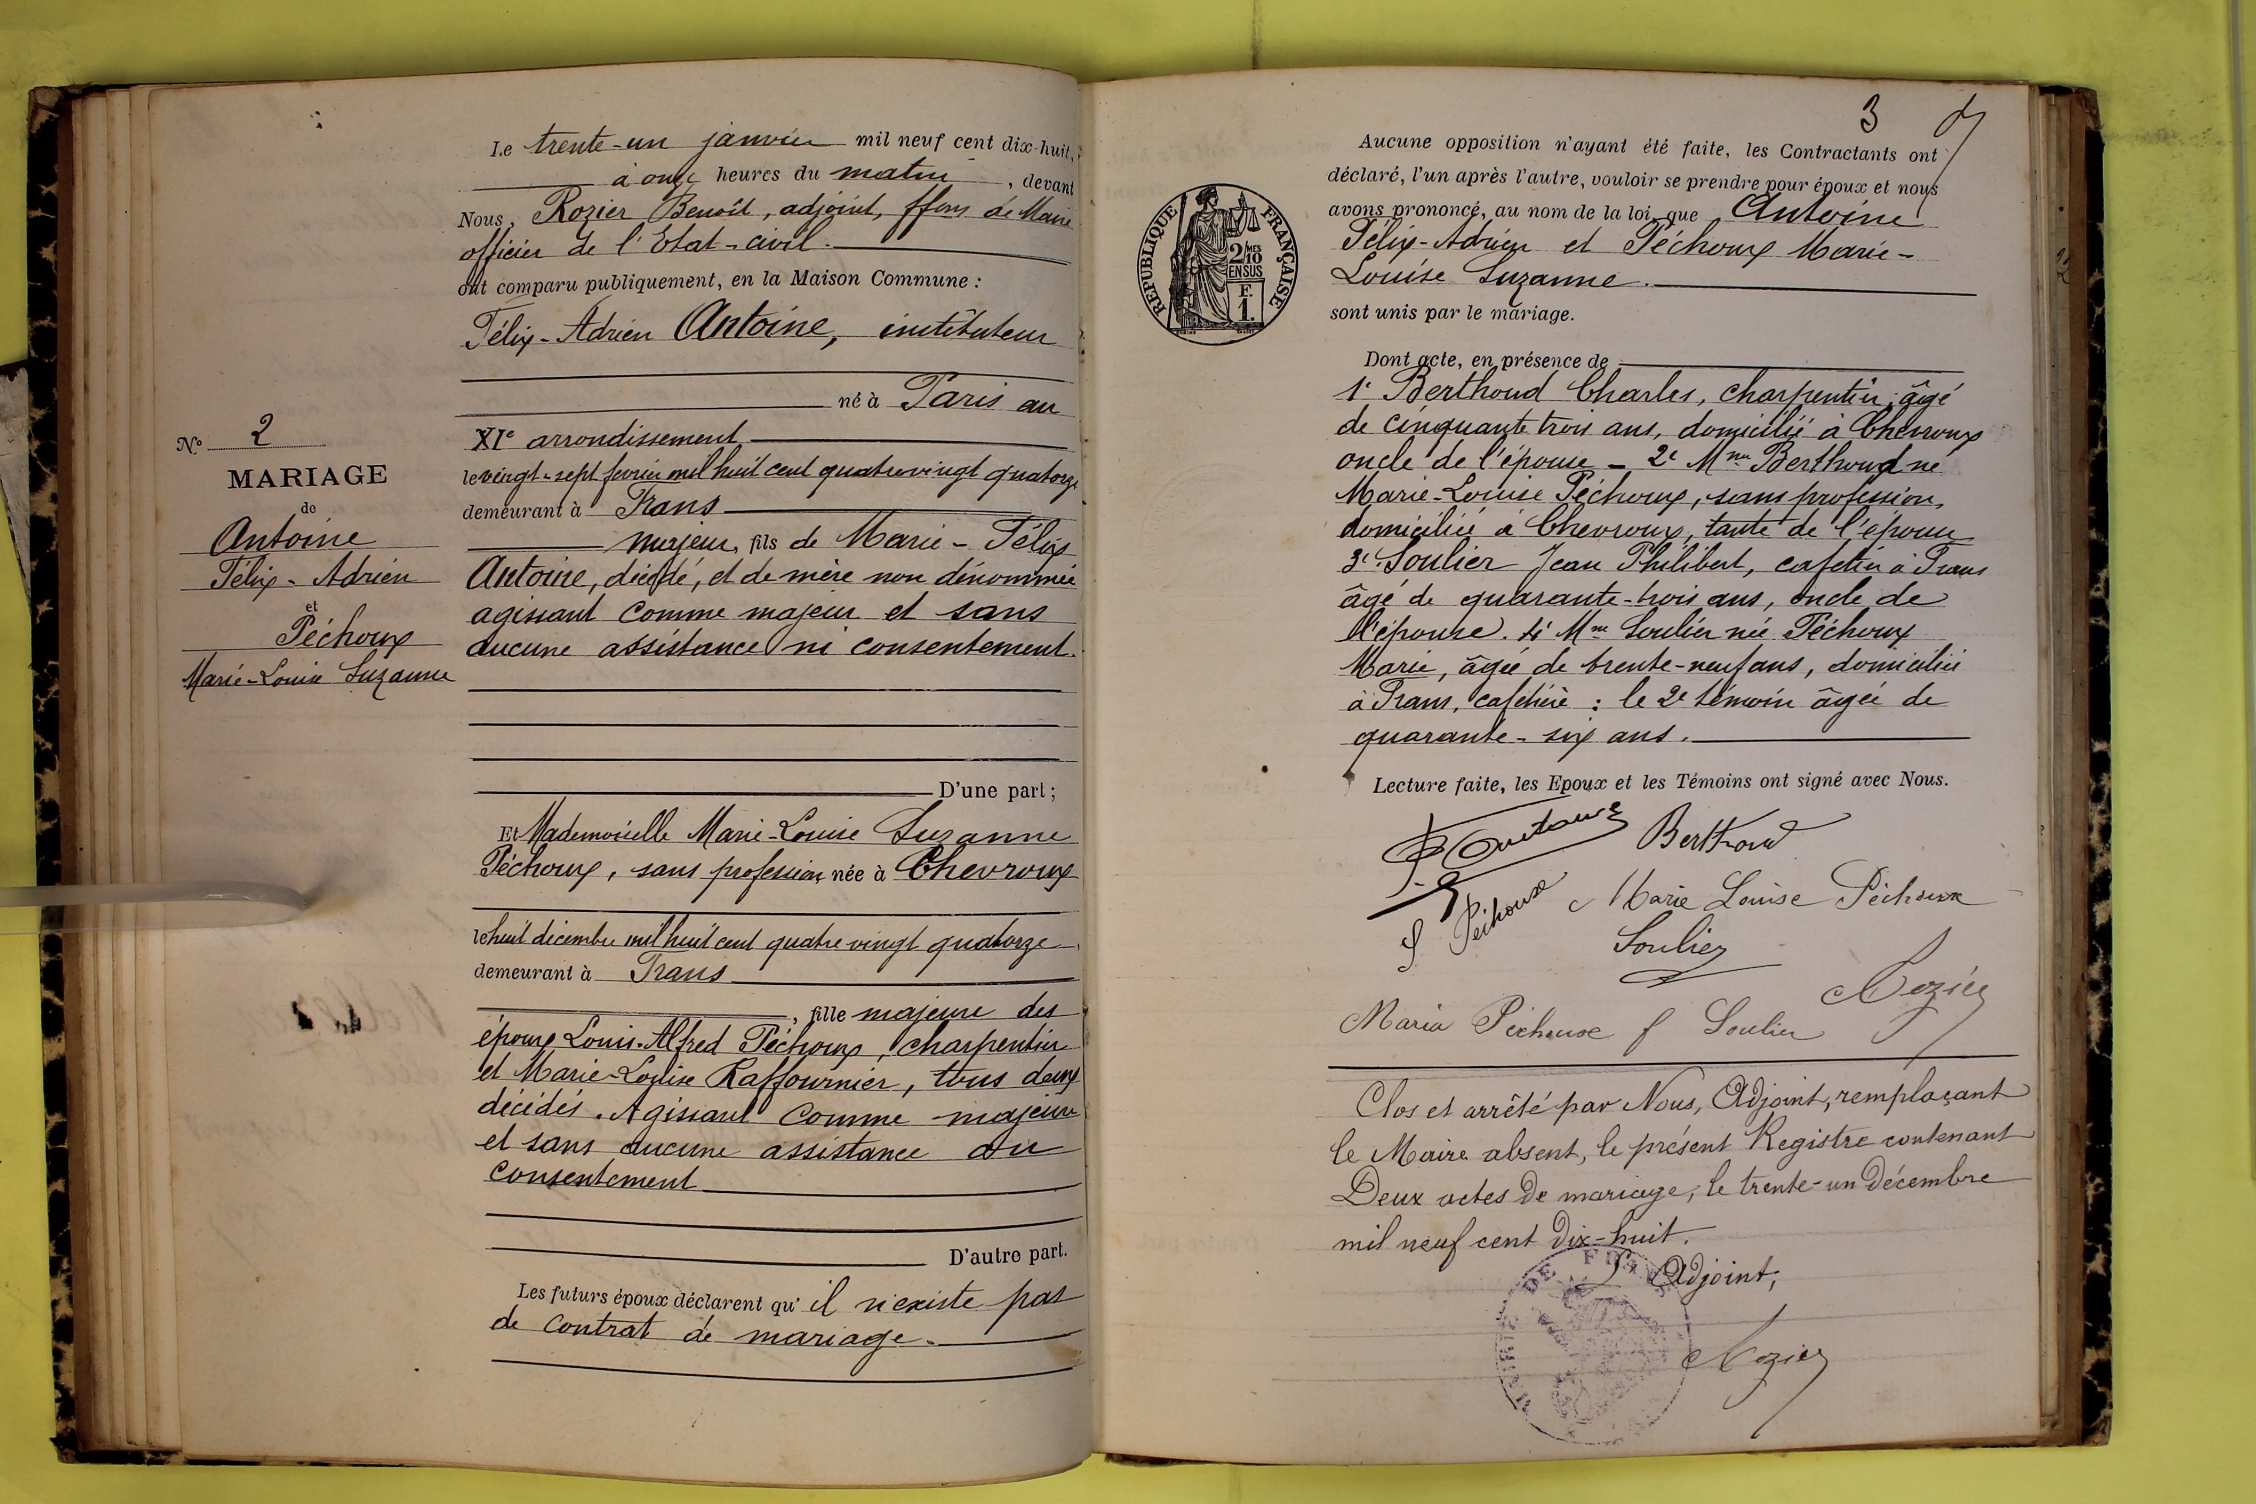 Le trente-un janvier mil neuf cent dix-huit,
à onze heures du matin, devant
Nous, Rozier Benoît, adjoint, ffons de Maire
officier de l'Etat-civil.
ont comparu publiquement, en la Maison Commune :
Félix-Adrien Antoine, instituteur
né à Paris au
XIe arrondissement
le vingt-sept février mil huit cent quatre vingt quatorze
demeurant à Frans
majeur, fils de Marie-Félix
Antoine, décédé, et de mère non dénommée
agissant comme majeur et sans
aucune assistance ni consentement.
D'une part ;
Et Mademoiselle Marie-Louise Suzanne
Péchoux, sans profession, née à Chevroux
le huit décembre mil huit cent quatre vingt quatorze
demeurant à Frans
, fille majeure des
époux Louis-Alfred Péchoux, charpentier
et Marie-Louise Raffournier, tous deux
décédés. Agissant comme majeure
et sans aucune assistance ou
consentement
D'autre part.
Les futurs époux déclarent qu'il n'existe pas
de contrat de mariage.
No 2
MARIAGE
de
Antoine
Félix-Adrien
et
Péchoux
Marie-Louise Suzanne
3
Aucune opposition n'ayant été faite, les Contractants ont
déclaré, l'un après l'autre, vouloir se prendre pour époux et nous
avons prononcé, au nom de la loi, que Antoine
Félix-Adrien et Péchoux Marie-
Louise Suzanne.
sont unis par le mariage.
RÉPUBLIQUE FRANÇAISE
2/10 MES
EN SUS
F.
1.
Dont acte, en présence de
1e Berthoud Charles, charpentier, âgé
de cinquante trois ans, domicilié à Chevroux
oncle de l'épouse - 2e Mme Berthoud né
Marie-Louise Péchoux, sans profession,
domiciliée à Chevroux, tante de l'épouse
3e Soulier Jean Philibert, cafetier à Frans
âgé de quarante-trois ans, oncle de
l'épouse. 4e Mme Soulier née Péchoux
Marie, âgée de trente-neuf ans, domiciliée
à Frans, cafetière : le 2e témoin âgée de
quarante-six ans.
Lecture faite, les Epoux et les Témoins ont signé avec Nous.
F Antoine Berthoud
S Péchoux Marie Louise Péchoux
Soulier
Rozier
Maria Péchoux f Soulier
Clos et arrêté par Nous, Adjoint, remplaçant
le Maire absent, le présent Registre contenant
Deux actes de mariage, le trente-un Décembre
mil neuf cent Dix-huit.
L'Adjoint,
Rozier
MAIRIE DE FRANS